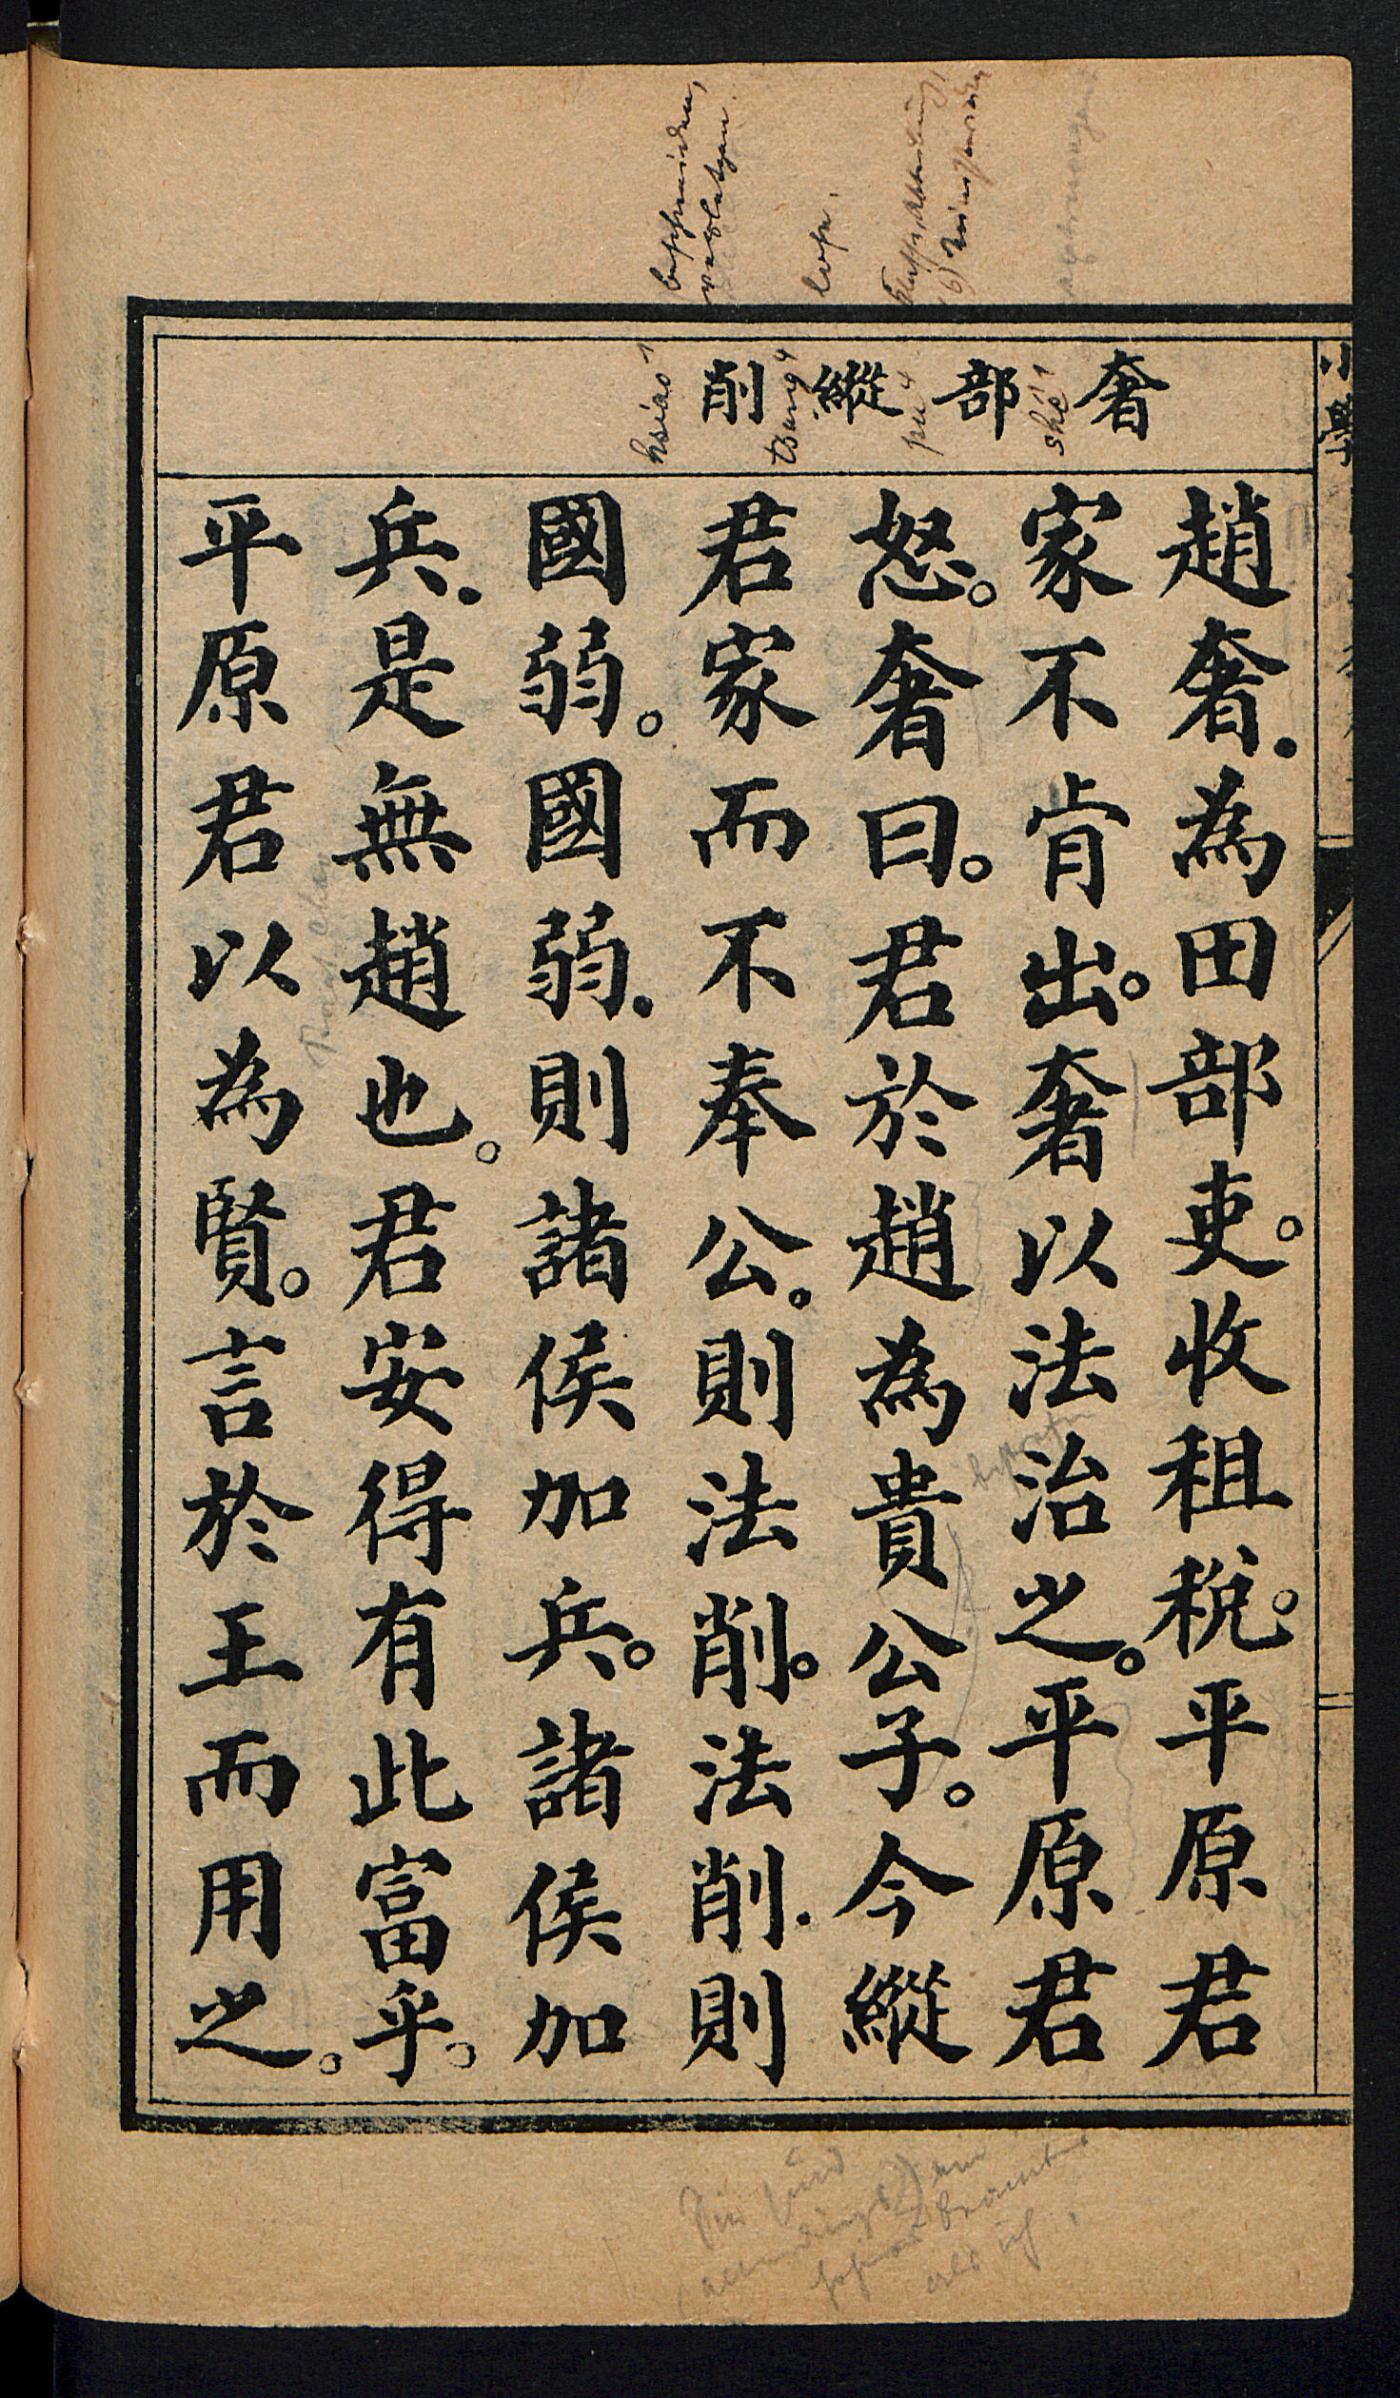 奢 部 縱 削
shê¹
pu⁴
tsung⁴
hsiao¹
趙奢.為田部吏。收租稅。平原君
家不肯出。奢以法治之。平原君
怒。奢曰。君於趙為貴公子。今縱
君家而不奉公。則法削。法削.則
國弱。國弱.則諸侯加兵。諸侯加
兵.是無趙也。君安得有此富乎。
平原君以為賢。言於王而用之。